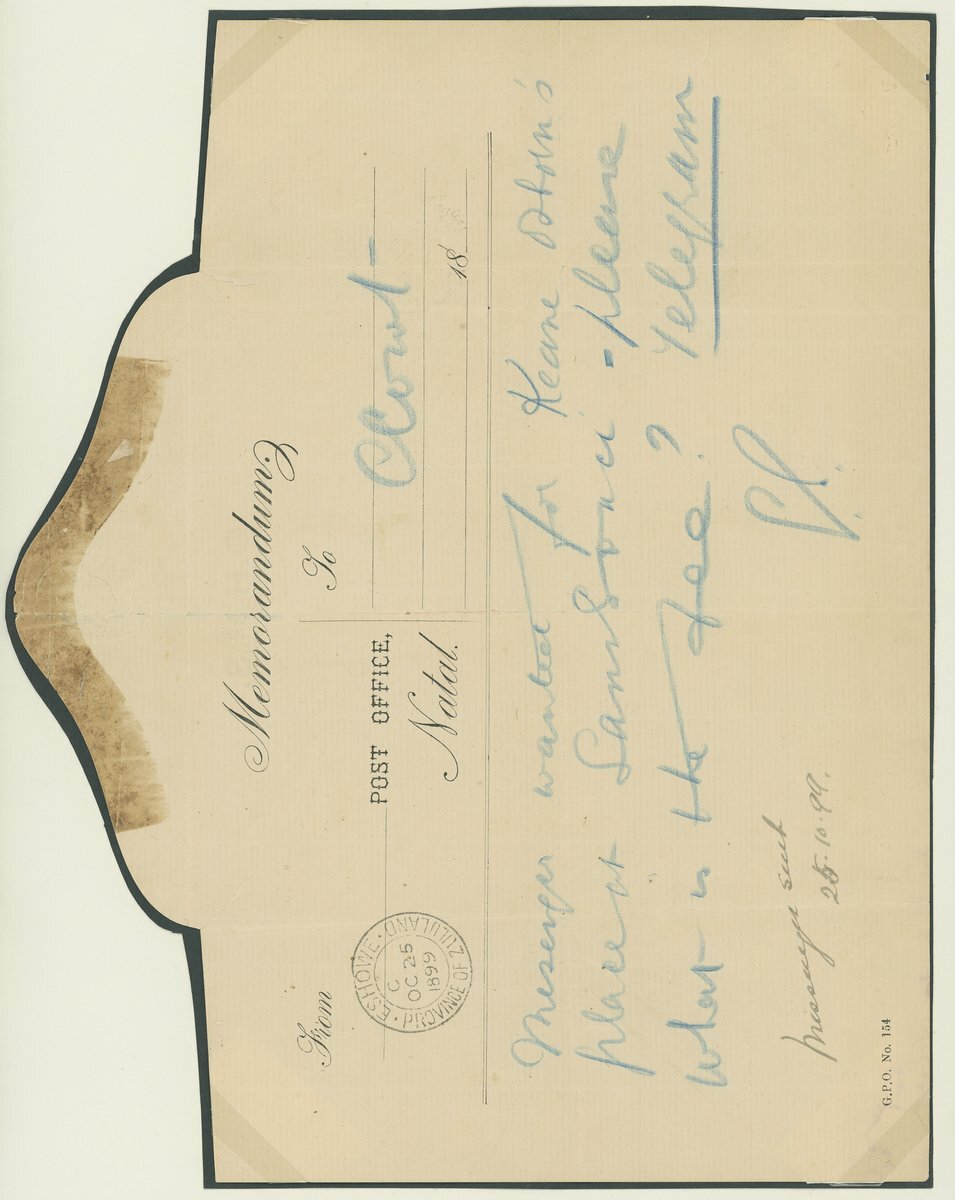 Memorandum
From
To
POST OFFICE,
Natal.
18
ESHOWE · PROVINCE OF ZULULAND
C
OC 25
1899
Messenger wanted for Keane
place at Sans Souci - please
what is the fee? Telegram
Messenger sent
25.10.99.
G.P.O. No. 154